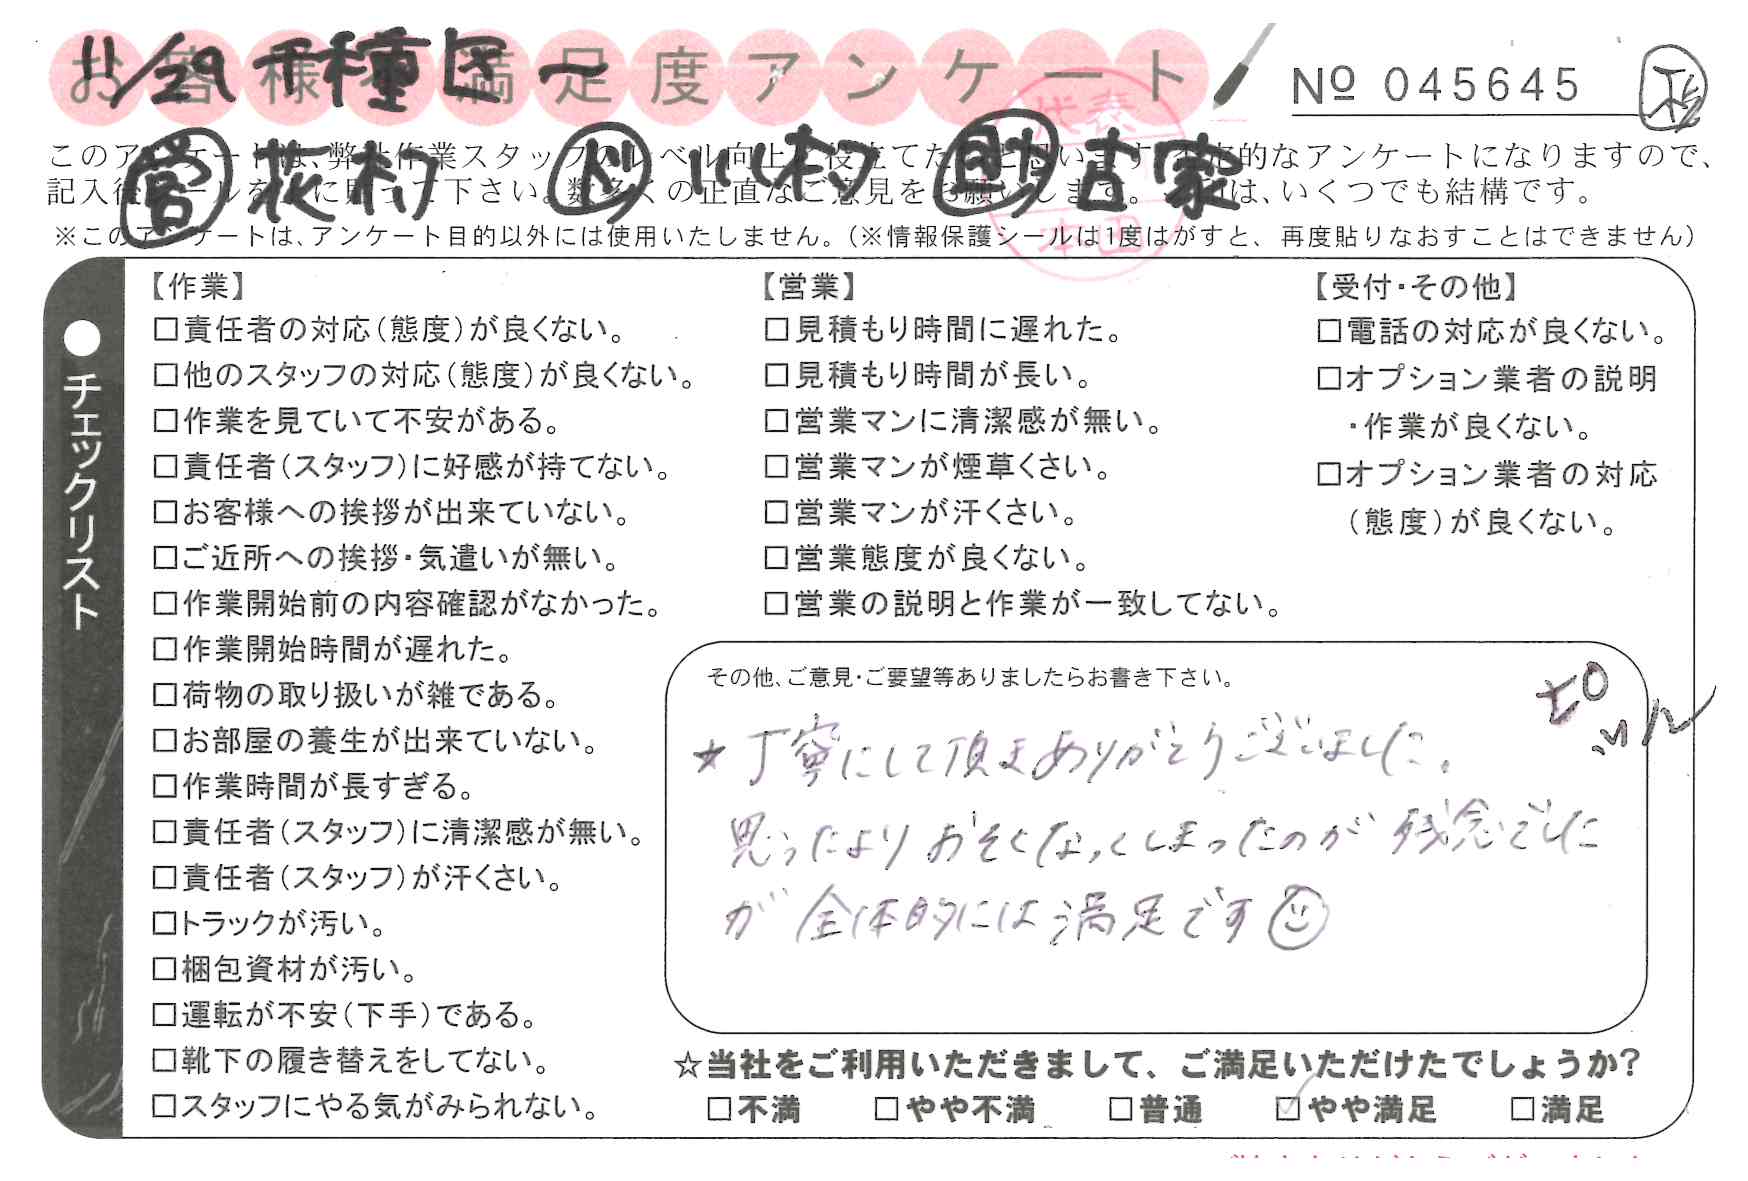 お客様の満足度アンケート
11/29 千種区〜
No 045645
このアンケートは、弊社作業スタッフのレベル向上に役立てたいと思います。定的なアンケートになりますので、
記入後シールを上に貼って下さい。数多くの正直なご意見をお願いします。は、いくつでも結構です。
営 花村 川村 助 古家
※このアンケートは、アンケート目的以外には使用いたしません。(※情報保護シールは1度はがすと、再度貼りなおすことはできません)
代表
本田
●チェックリスト
【作業】
□責任者の対応(態度)が良くない。
□他のスタッフの対応(態度)が良くない。
□作業を見ていて不安がある。
□責任者(スタッフ)に好感が持てない。
□お客様への挨拶が出来ていない。
□ご近所への挨拶・気遣いが無い。
□作業開始前の内容確認がなかった。
□作業開始時間が遅れた。
□荷物の取り扱いが雑である。
□お部屋の養生が出来ていない。
□作業時間が長すぎる。
□責任者(スタッフ)に清潔感が無い。
□責任者(スタッフ)が汗くさい。
□トラックが汚い。
□梱包資材が汚い。
□運転が不安(下手)である。
□靴下の履き替えをしてない。
□スタッフにやる気がみられない。
【営業】
□見積もり時間に遅れた。
□見積もり時間が長い。
□営業マンに清潔感が無い。
□営業マンが煙草くさい。
□営業マンが汗くさい。
□営業態度が良くない。
□営業の説明と作業が一致してない。
【受付・その他】
□電話の対応が良くない。
□オプション業者の説明
・作業が良くない。
□オプション業者の対応
(態度)が良くない。
その他、ご意見・ご要望等ありましたらお書き下さい。
★丁寧にして頂きありがとうございました。
思ったよりおそくなってしまったのが残念でした
が全体的には満足です
☆当社をご利用いただきまして、ご満足いただけたでしょうか?
□不満 □やや不満 □普通 ☑やや満足 □満足